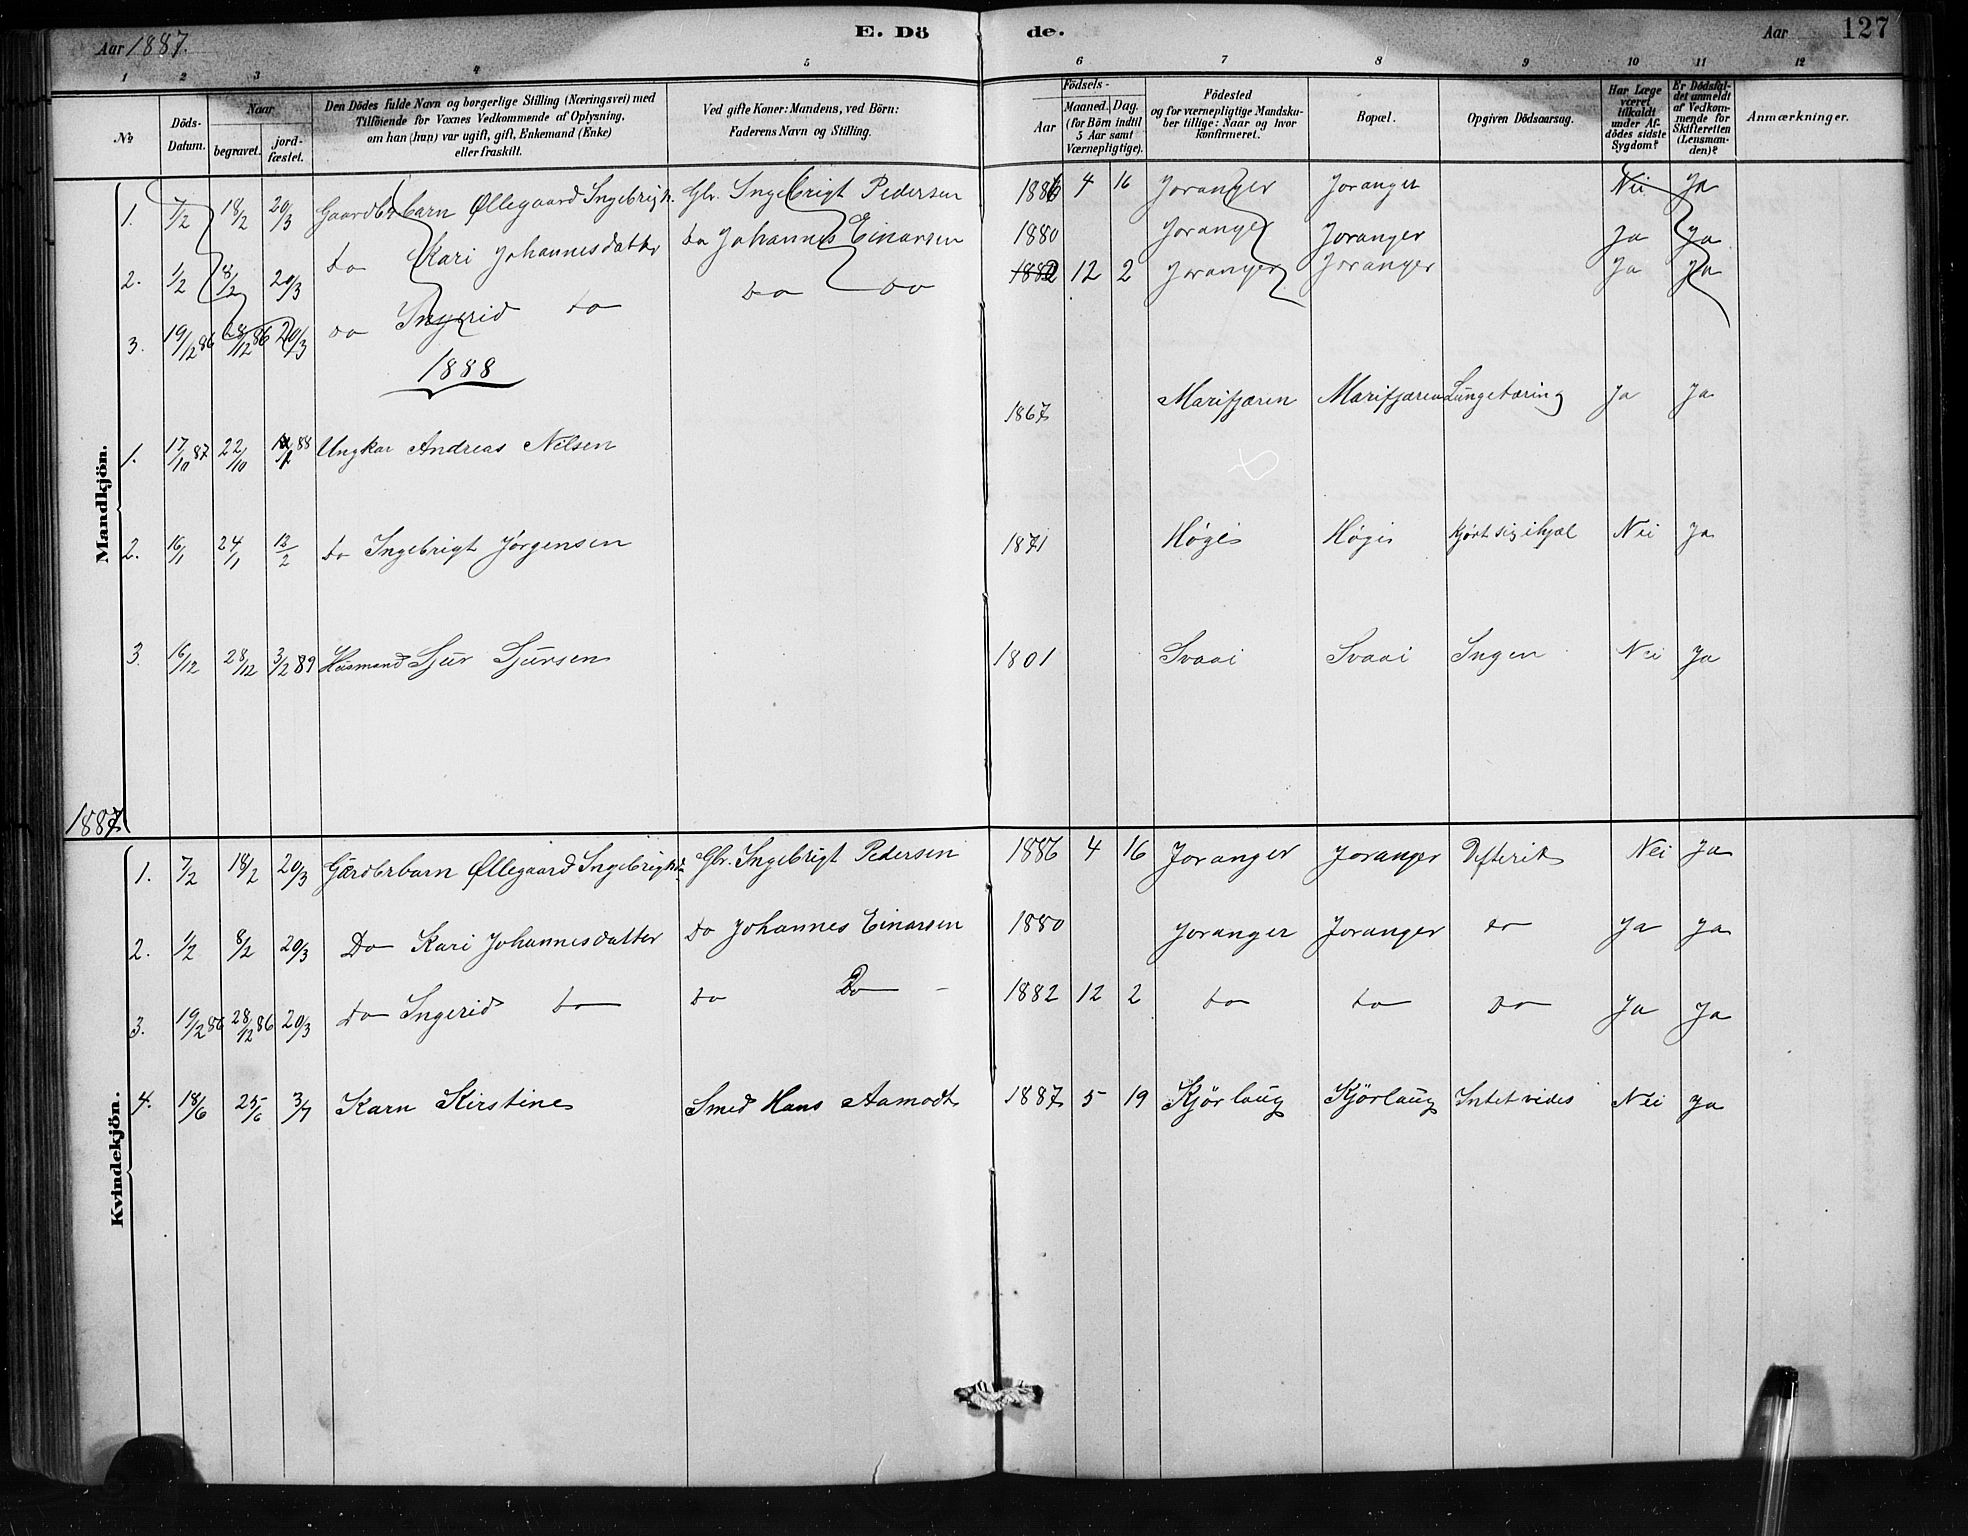 Aar 1887. E. Dö de. Aar 127
1 2 3 4 5 6 7 8 9 10 11 12
No
Döds-Datum.
Naar
begravet.
jord-fæstet.
Den Dödes fulde Navn og borgerlige Stilling (Næringsvei) med
Tilföiende for Voxnes Vedkommende af Oplysning,
om han (hun) var ugift, gift, Enkemand (Enke)
eller fraskilt.
Ved gifte Koner: Mandens, ved Börn:
Faderens Navn og Stilling.
Födsels-
Aar
Maaned. Dag.
(for Börn indtil
5 Aar samt
Værnepligtige).
Födested
og for værnepligtige Mandsku-
ber tillige: Naar og hvor
konfirmeret.
Bopæl.
Opgiven Dödsaarsag.
Har Læge
været
tilkaldt
under Af-
dödes sidste
Sygdom?
Er Dödsfal-
det anmeldt
af Vedkom-
mende for
Skifteretten
(Lensman-
den)?
Anmærkninger.
Mandkjön.
1. 7/2 18/2 20/3 Gaardbrbarn Øllegaard Ingebrigh. Gbr. Ingebrigt Pedersen 1886 4 16 Joranger Joranger Nei Ja
2. 1/2 8/2 20/3 do Kari Johannesdatter do Johannes Einarsen 1880 Joranger Joranger Ja Ja
3. 19/12 86 28/12 86 20/3 do Ingerid do do do 1882 12 2 Joranger Joranger Ja Ja
1888
1. 17/10 87 22/10 88 Ungkar Andreas Nilsen 1867 Marifjæren Marifjæren Lungetæring Ja Ja
2. 16/1 24/1 12/2 do Ingebrigt Jørgensen 1871 Høgi Høgi Kjørt sig ihjæl Nei Ja
3. 16/12 28/12 3/2 89 Husmand Sjur Sjursen 1801 Svaai Svaai Ingen Nei Ja
1887
Kvindekjön.
1. 7/2 18/2 20/3 Gardbrbarn Øllegaard Ingebrightd. Gbr. Ingebrigt Pedersen 1886 4 16 Joranger Joranger Difterit Nei Ja
2. 1/2 8/2 20/3 Do Kari Johannesdatter do Johannes Einarsen 1880 Joranger Joranger do Ja Ja
3. 19/12 86 28/12 86 20/3 do Ingerid do do Do 1882 12 2 do do do Ja Ja
4. 18/6 25/6 3/7 Karn Kirstine Smed Hans Aamodt 1887 5 19 Kjørlaug Kjørlaug Intet vides Nei Ja